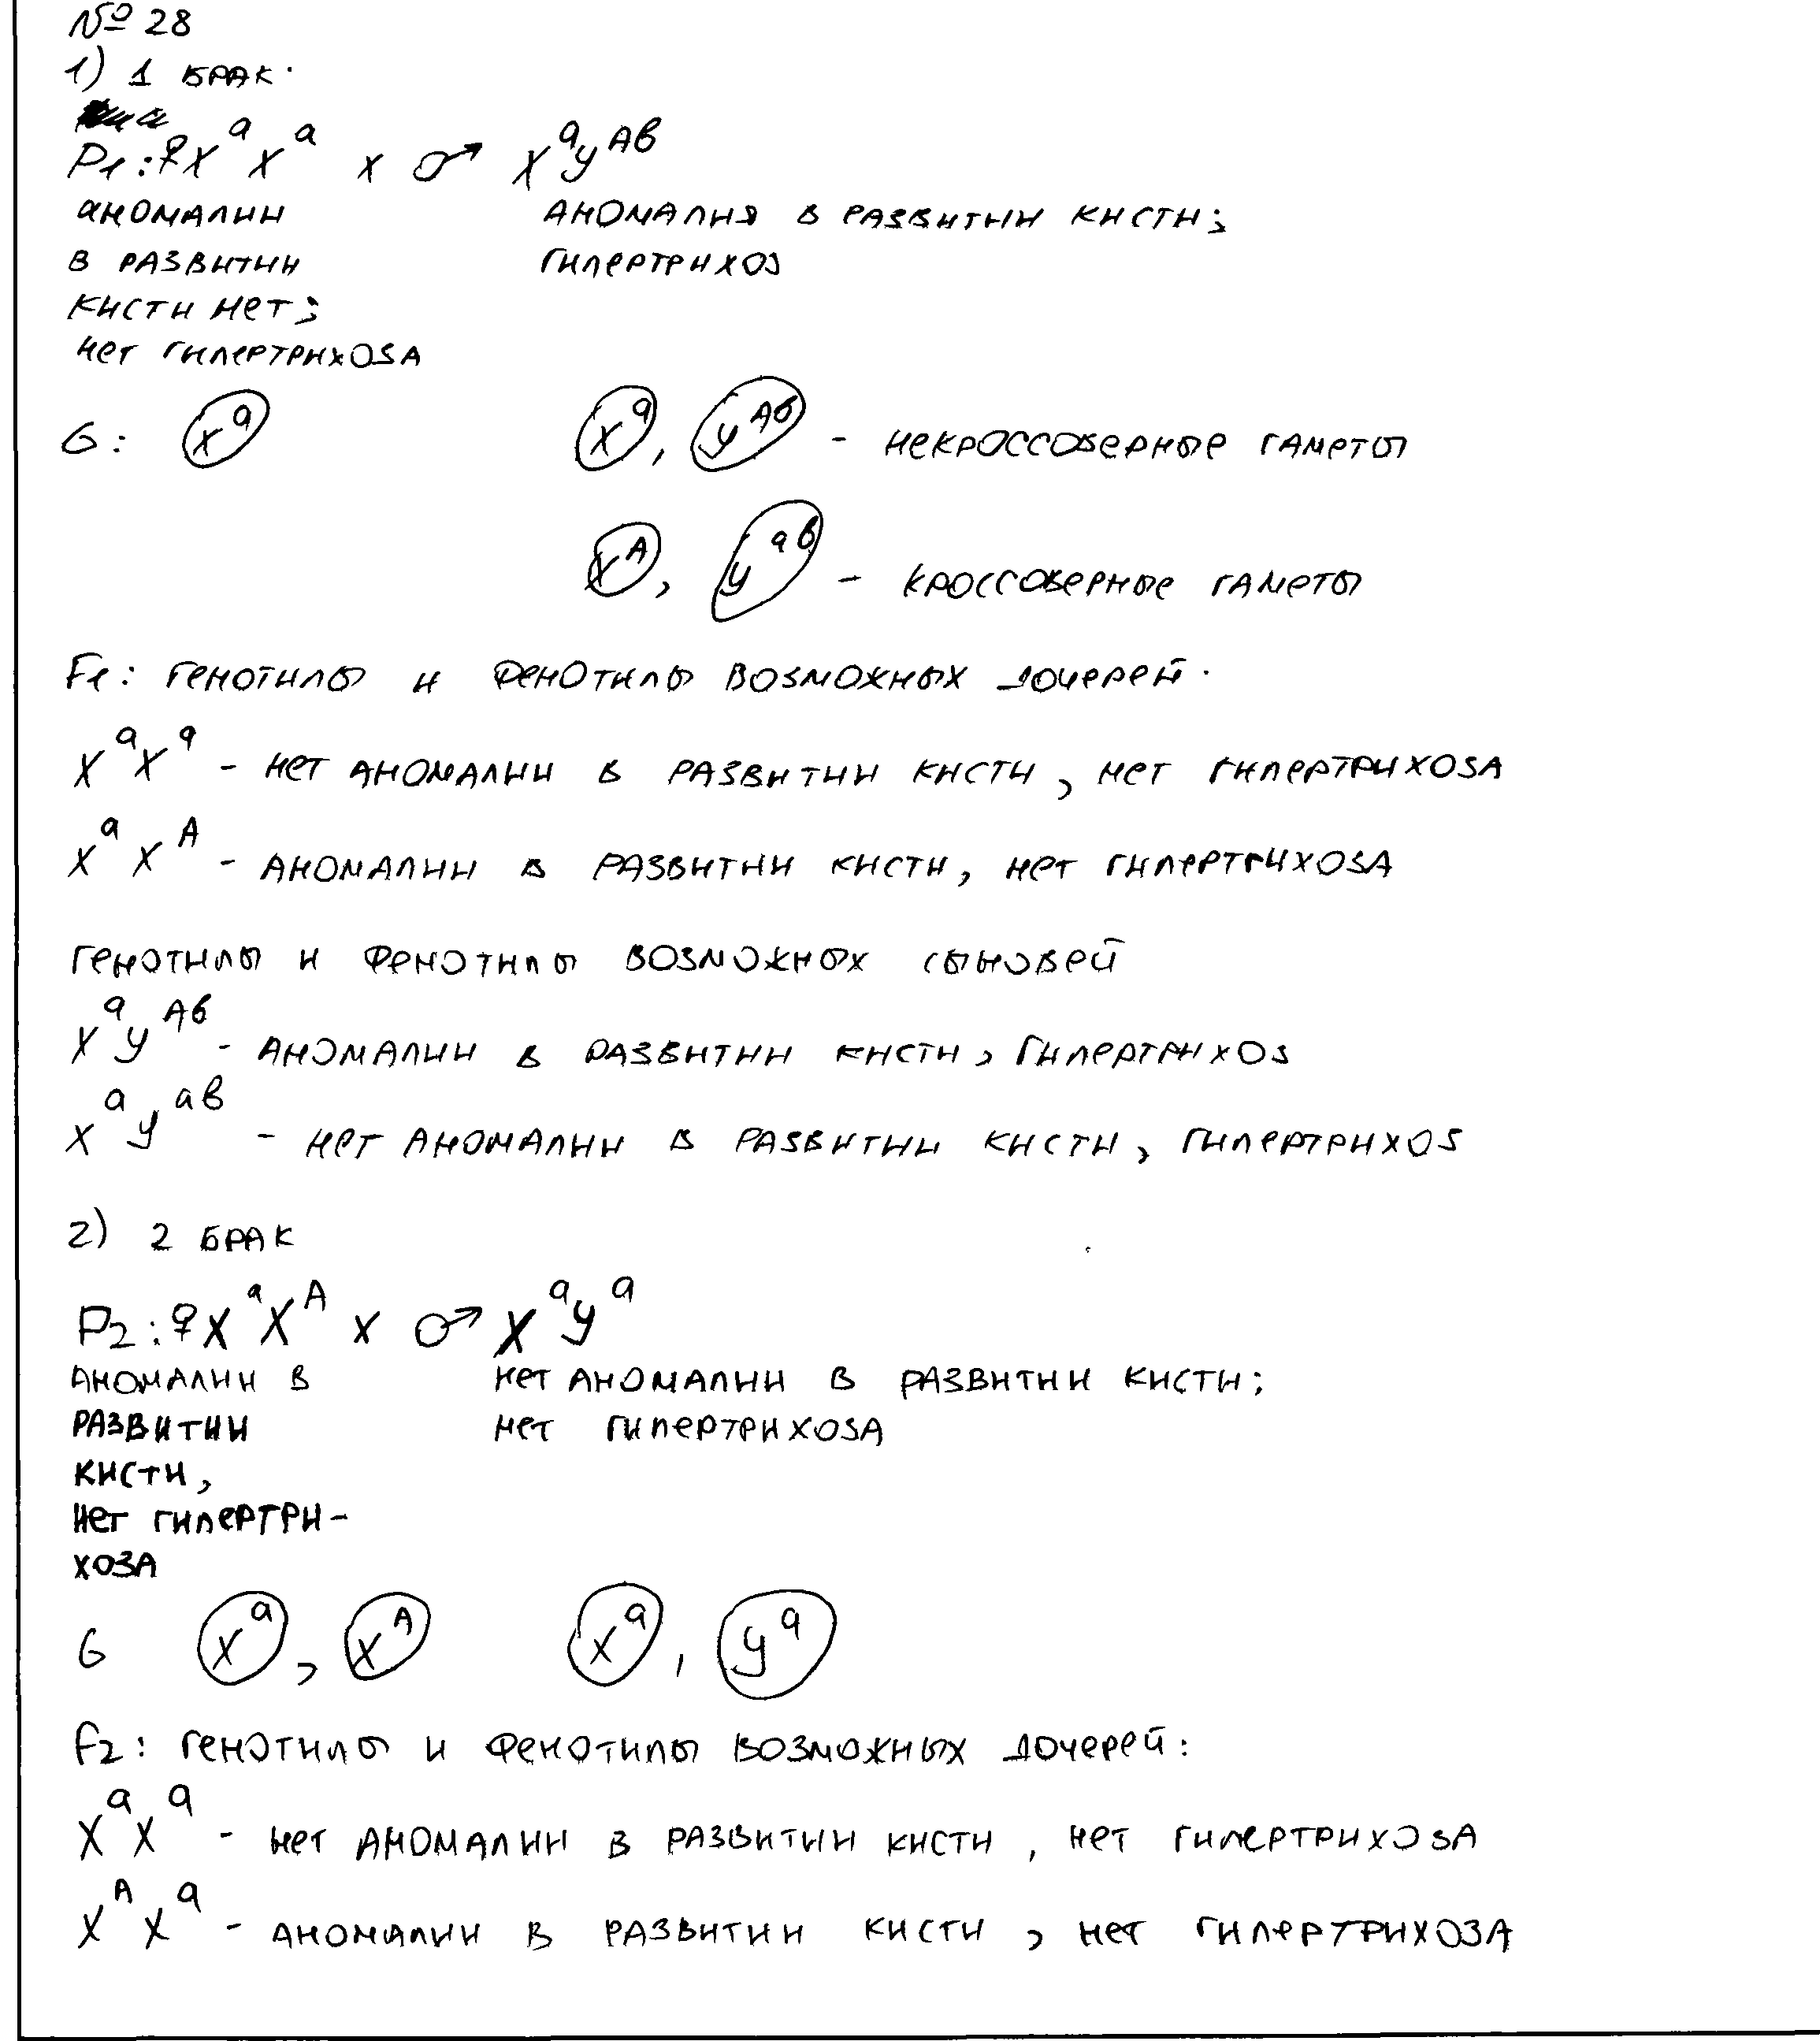 № 28
1) 1 БРАК.
P1: ♀ X^a X^a x ♂ X^a Y^Aв
АНОМАЛИИ АНОМАЛИЯ В РАЗВИТИИ КИСТИ;
В РАЗВИТИИ ГИПЕРТРИХОЗ
КИСТИ НЕТ;
НЕТ ГИПЕРТРИХОЗА
G: X^a X^a, Y^Aв - НЕКРОССОВЕРНЫЕ ГАМЕТЫ
X^A, Y^aв - КРОССОВЕРНЫЕ ГАМЕТЫ
F1: ГЕНОТИПЫ И ФЕНОТИПЫ ВОЗМОЖНЫХ ДОЧЕРЕЙ.
X^a X^a - НЕТ АНОМАЛИИ В РАЗВИТИИ КИСТИ, НЕТ ГИПЕРТРИХОЗА
X^a X^A - АНОМАЛИИ В РАЗВИТИИ КИСТИ, НЕТ ГИПЕРТРИХОЗА
ГЕНОТИПЫ И ФЕНОТИПЫ ВОЗМОЖНЫХ СЫНОВЕЙ
X^a Y^Aв - АНОМАЛИИ В РАЗВИТИИ КИСТИ, ГИПЕРТРИХОЗ
X^a Y^aв - НЕТ АНОМАЛИИ В РАЗВИТИИ КИСТИ, ГИПЕРТРИХОЗ
2) 2 БРАК
P2: ♀ X^a X^A x ♂ X^a Y^a
АНОМАЛИИ В НЕТ АНОМАЛИИ В РАЗВИТИИ КИСТИ;
РАЗВИТИИ НЕТ ГИПЕРТРИХОЗА
КИСТИ,
НЕТ ГИПЕРТРИ-
ХОЗА
G X^a, X^A X^a, Y^a
F2: ГЕНОТИПЫ И ФЕНОТИПЫ ВОЗМОЖНЫХ ДОЧЕРЕЙ:
X^a X^a - НЕТ АНОМАЛИИ В РАЗВИТИИ КИСТИ, НЕТ ГИПЕРТРИХОЗА
X^A X^a - АНОМАЛИИ В РАЗВИТИИ КИСТИ, НЕТ ГИПЕРТРИХОЗА